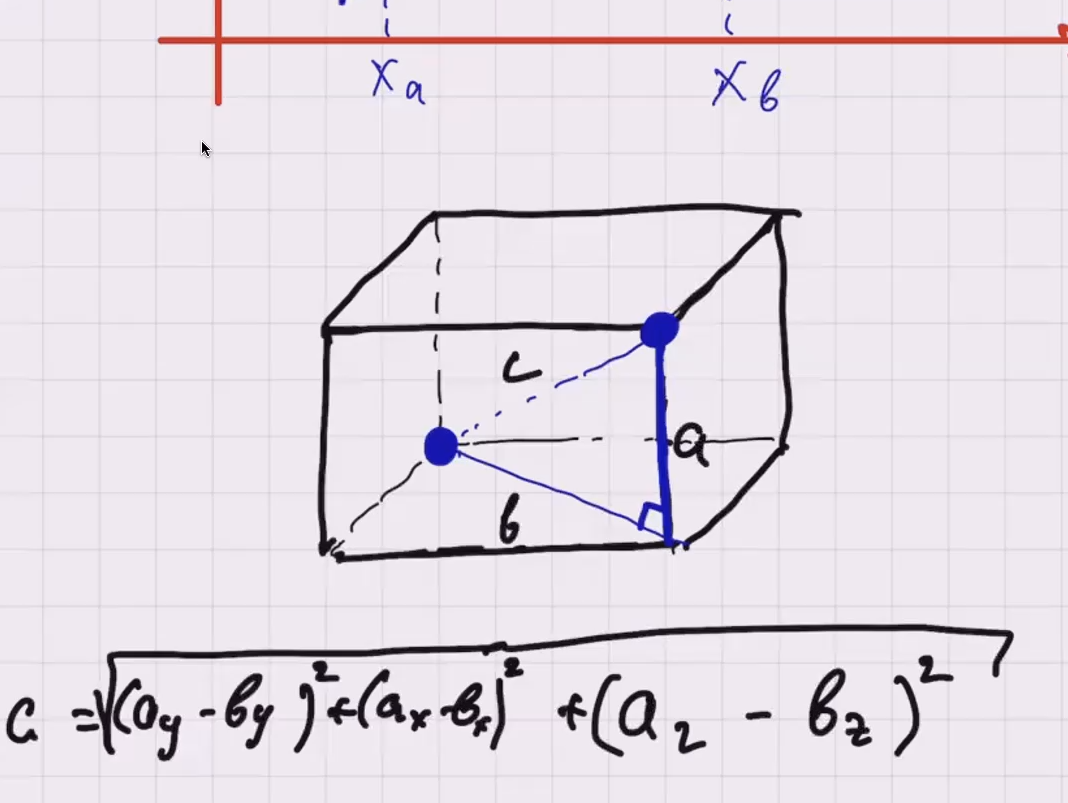 x a x b
c
a
b
c = √(ay - by)² + (ax - bx)² + (az - bz)²